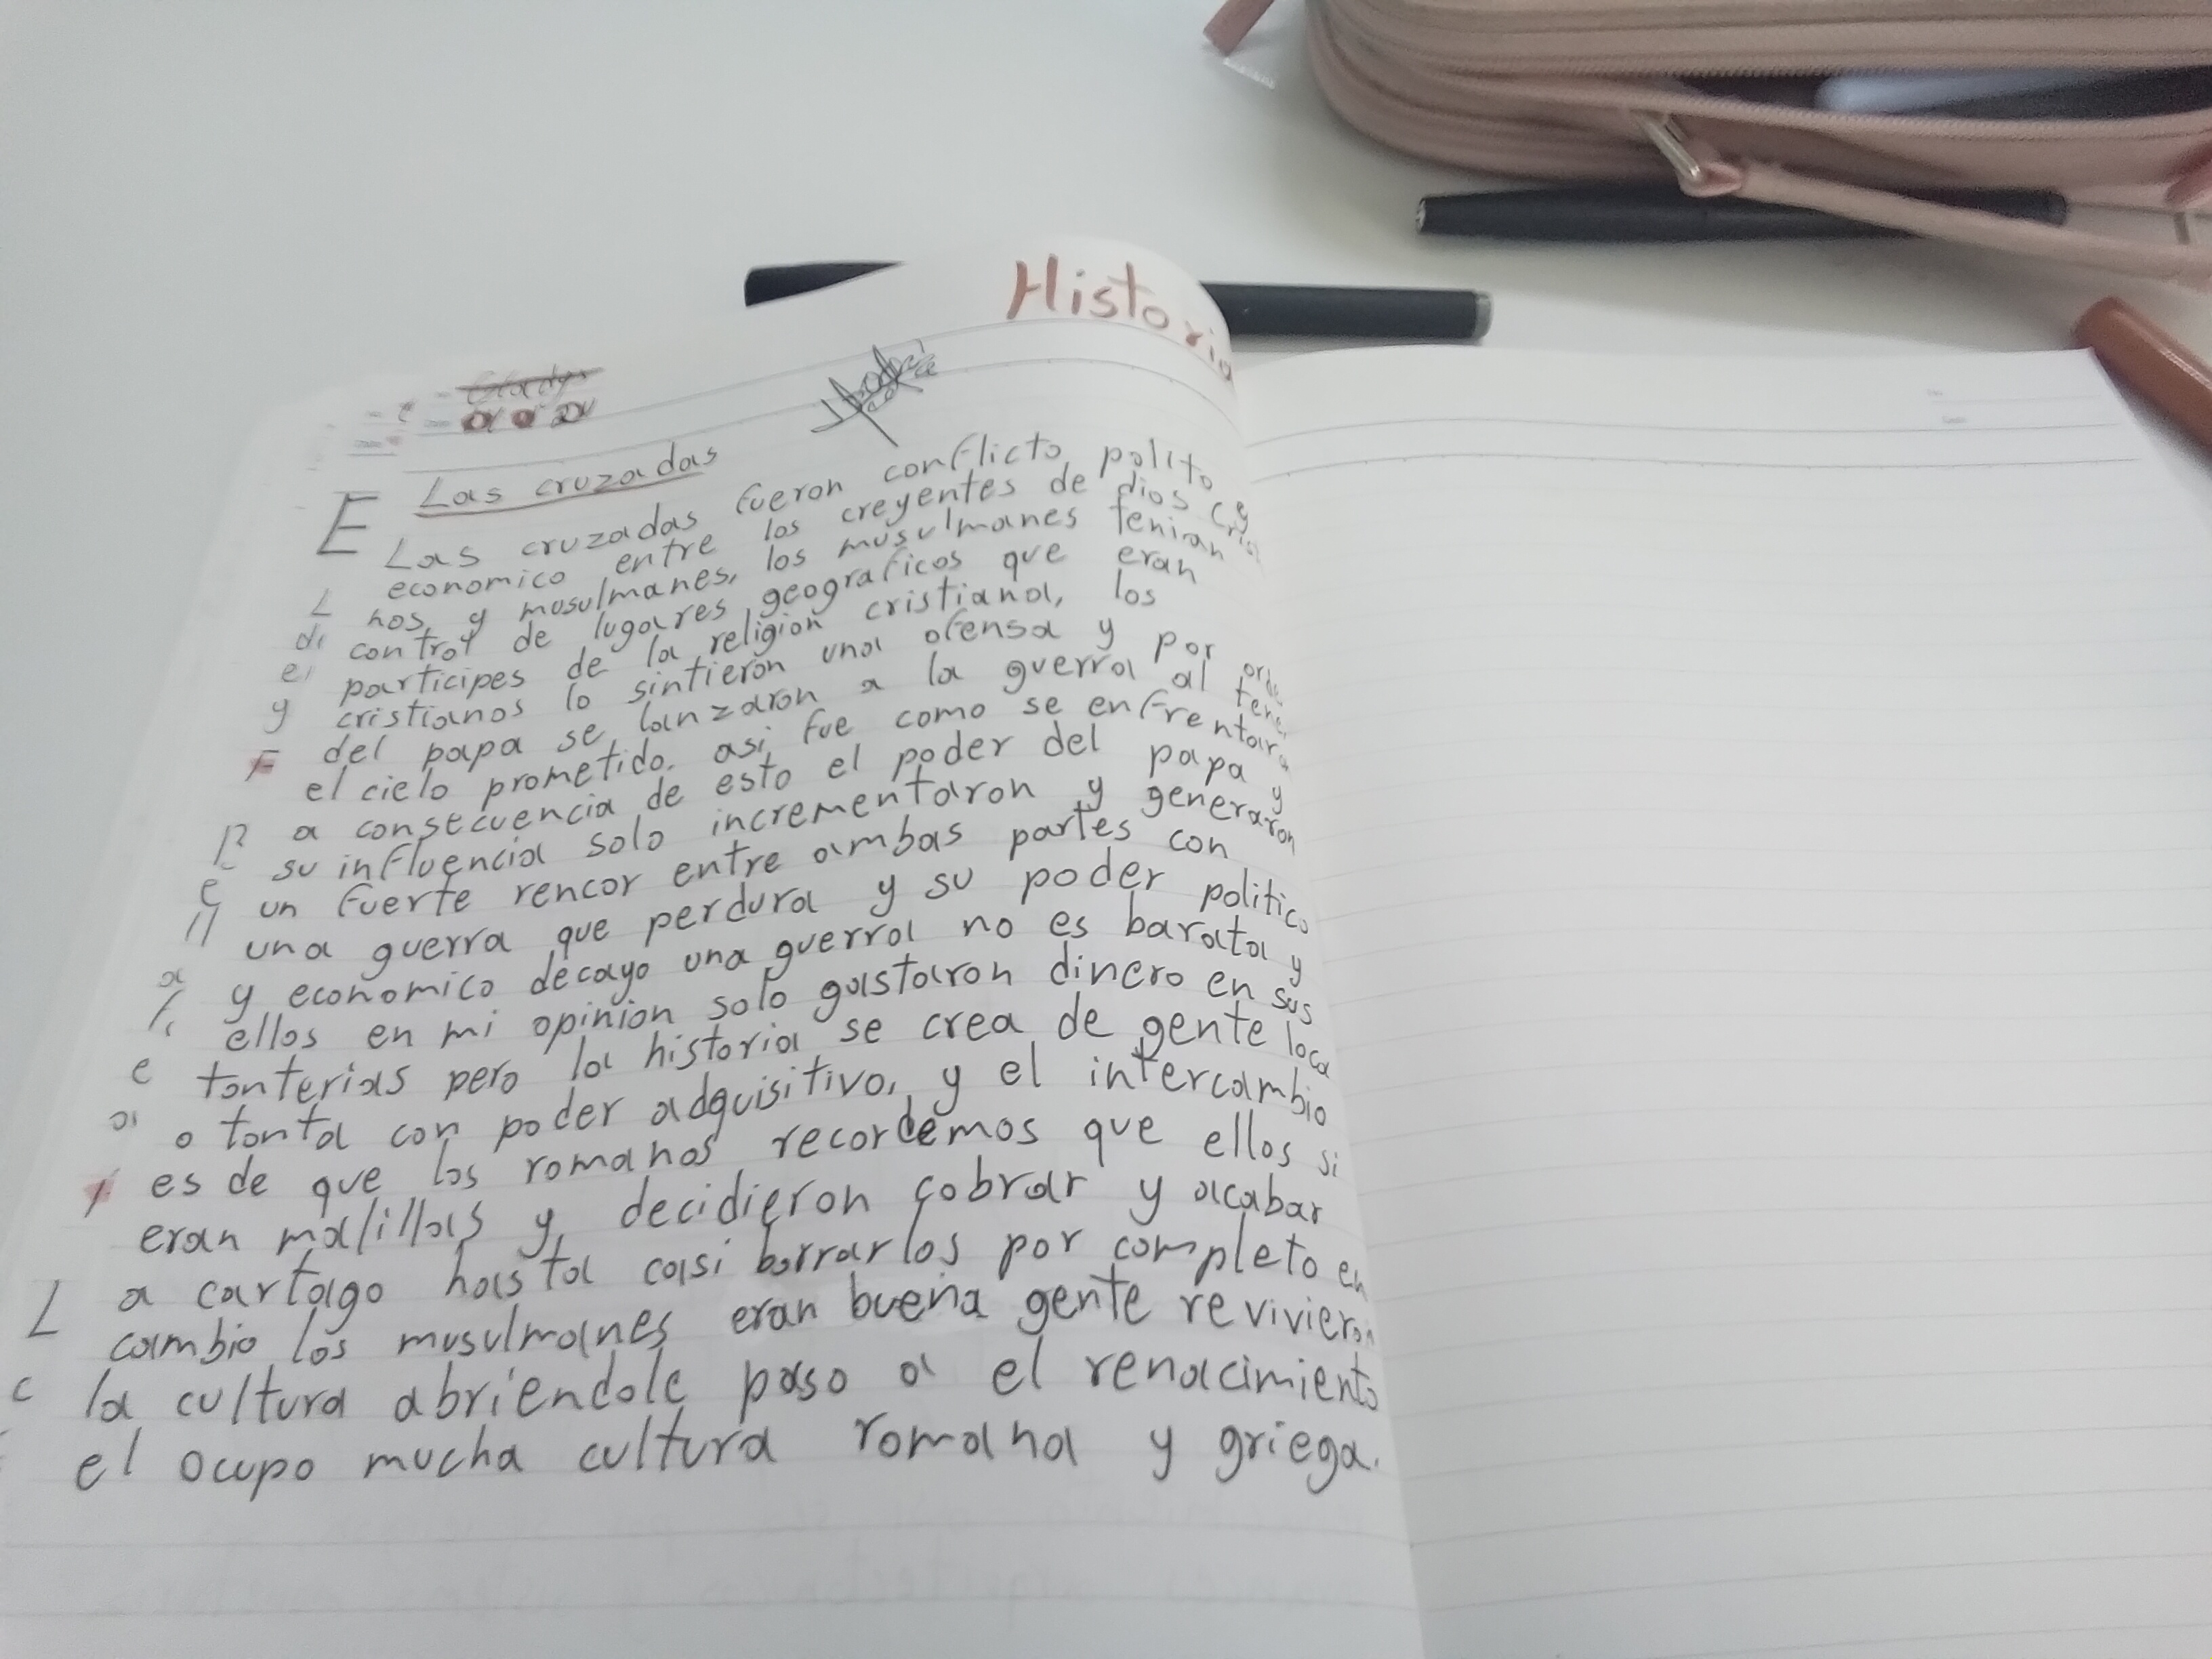 Historia
Las cruzadas
Las cruzadas fueron conflicto polito y
economico entre los creyentes de dios cris
nos, y musulmanes, los musulmanes tenian
control de lugares geograficos que eran
participes de la religion cristiana, los
cristianos lo sintieron una ofensa y por orde
del papa se lanzaron a la guerra al tener
el cielo prometido. asi fue como se enfrentara
a consecuencia de esto el poder del papa y
su influencia solo incrementaron y generaron
un fuerte rencor entre ambas partes con
una guerra que perdura y su poder politico
y economico decayo una guerra no es barata y
ellos en mi opinion solo gastaron dinero en sus
tonterias pero la historia se crea de gente loca
o tonta con poder adquisitivo, y el intercambio
es de que los romanos recordemos que ellos si
eran malillas y decidieron cobrar y acabar
a cartago hasta casi borrarlos por completo en
cambio los musulmanes eran buena gente revivieron
la cultura abriendole paso a el renacimiento
el ocupo mucha cultura romana y griega.